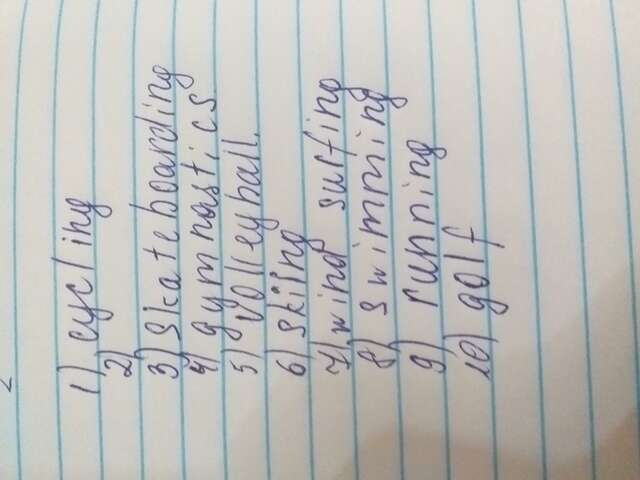 1) cycling
2)
3) skateboarding
4) gymnastics
5) volleyball.
6) skiing
7) wind surfing
8) swimming
9) running
10) golf